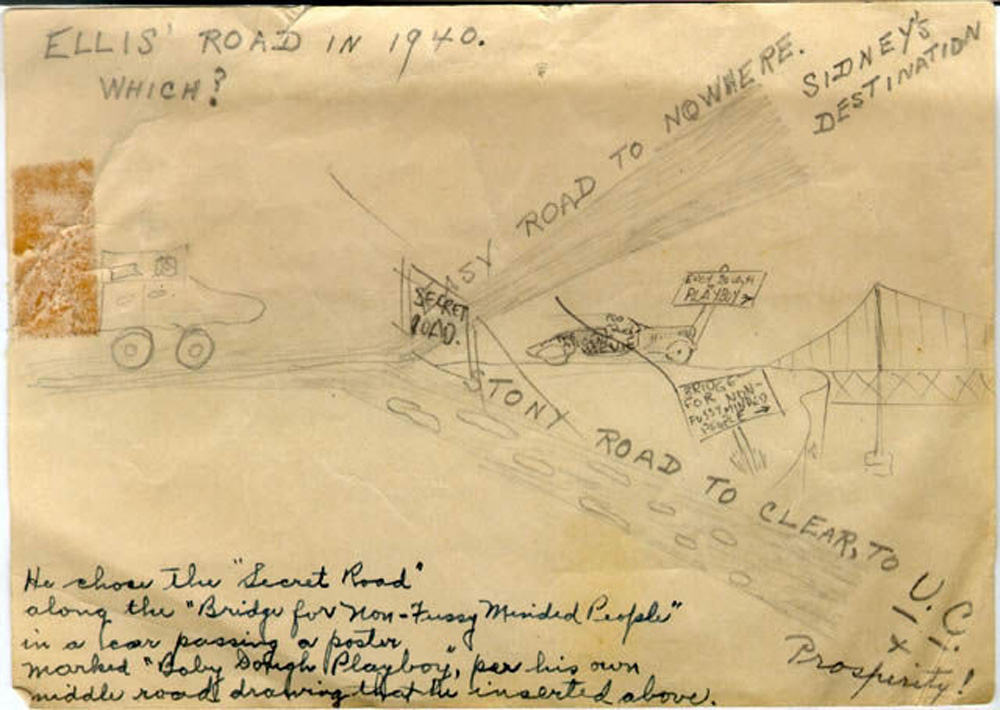 ELLIS' ROAD IN 1940.
WHICH?
ASY ROAD TO NOWHERE.
SIDNEY'S
DESTINATION
SECRET
ROAD.
PLAYBOY
BRIDGE
FOR NON-
FUSSY MINDED
PEOPLE
STONY ROAD TO CLEAR, TO
U.C.
+
Prosperity!
He chose the "Secret Road"
along the "Bridge for Non-Fussy Minded People"
in a car passing a poster
marked "Baby Dough Playboy", per his own
middle road drawing that he inserted above.